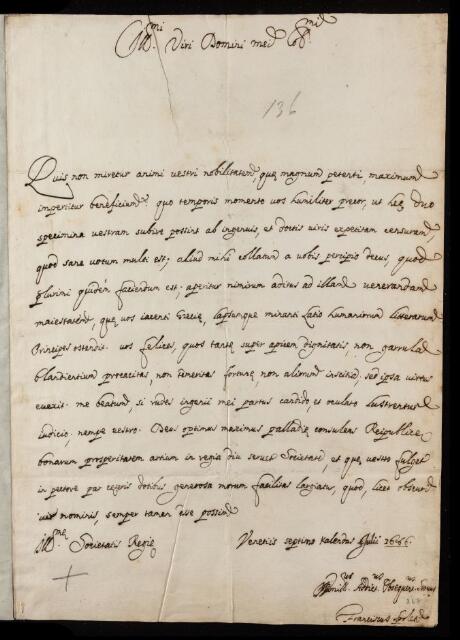 Ill.mi Viri Domini mei Col.mi
136
Quis non miretur animi uestri nobilitatem, quę magnum petenti, maximum
impertitur beneficium? quo temporis momento uos humiliter precor, ut hęc duo
specimina uestram subire possint ab ingenuis, et doctis uiris expetitam censuram,
quod sane uotum multi est; aliud mihi collatum a uobis percipio decus, quod
plurimi quidem faciendum est; aperitur nimirum aditus ad illam uenerandam
maiestatem, quę uos iacenti Gręcię, lapsumque miranti Latio humaniorum litterarum
Principes ostendit. uos felices, quos tantę super apicem dignitatis, non garrula
blandientium procacitas, non temeritas fortunę, non alienum inscitię, sed ipsa uirtus
euexit. me beatum, si rudes ingenii mei partus candido, et oculato lustrentur
Iudicio, nempe uestro. Deus optimus maximus palladię consulens Reipublicę
bonarum prosperitatem artium in regia diu seruet Societate, et quę uestro fulget
in pectore par cęteris dotibus generosa morum facilitas largiatur, quod, licet obscuri
uir nominis, semper tamen esse possim
Ill.mę Societatis Regię Venetiis septimo kalendas Julii
Humill.us Addict.us Obsequent.
Franciscus